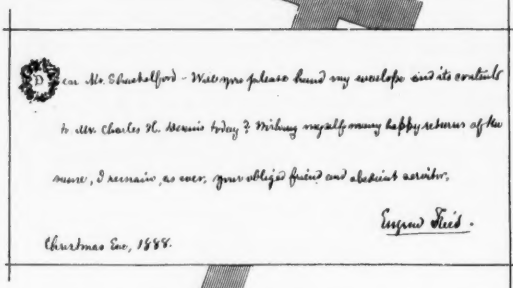 Dear Mr. Shackelford - Will you please hand my envelope and its contents
to Mr. Charles H. Dennis today? Wishing myself many happy returns of the
same, I remain, as ever, your obliged friend and obedient servitor,
Eugene Field.
Christmas Eve, 1888.